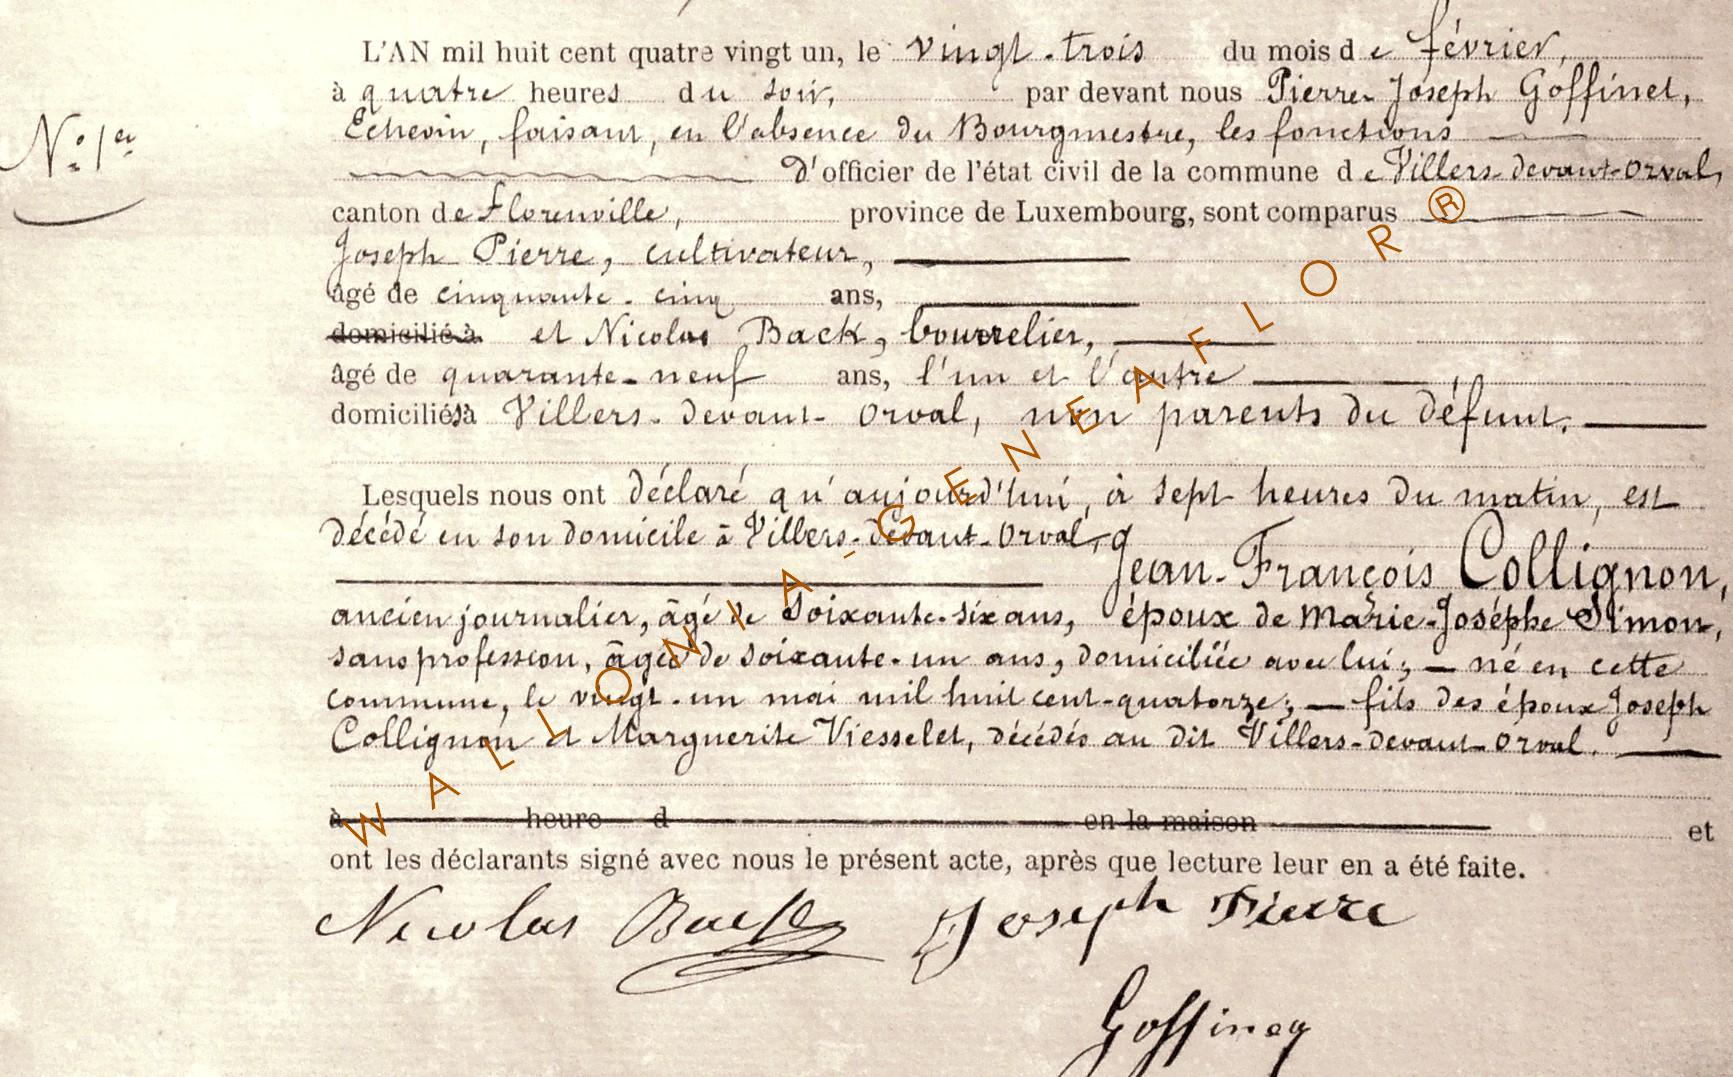 L'AN mil huit cent quatre vingt un, le vingt-trois du mois de février,
à quatre heures du soir, par devant nous Pierre-Joseph Goffinet,
Echevin, faisant, en l'absence du Bourgmestre, les fonctions
N.º 1er
d'officier de l'état civil de la commune de Villers-devant-Orval,
canton de Florenville, province de Luxembourg, sont comparus
Joseph Pierre, cultivateur,
âgé de cinquante-cinq ans,
domicilié à et Nicolas Back, bourrelier,
âgé de quarante-neuf ans, l'un et l'autre
domiciliés à Villers-devant-Orval, non parents du défunt.
Lesquels nous ont déclaré qu'aujourd'hui, à sept heures du matin, est
décédé en son domicile à Villers-devant-Orval,
Jean-François Collignon,
ancien journalier, âgé de soixante-six ans, époux de Marie-Joséphe Simon,
sans profession, âgée de soixante-un ans, domiciliée avec lui; — né en cette
commune, le vingt-un mai mil huit cent-quatorze; — fils des époux Joseph
Collignon et Marguerite Viesselet, décédés au dit Villers-devant-Orval.
à heure d en la maison et
ont les déclarants signé avec nous le présent acte, après que lecture leur en a été faite.
Nicolas Back Joseph Pierre
Goffinet
WALLONIA-GENEAFLOR®